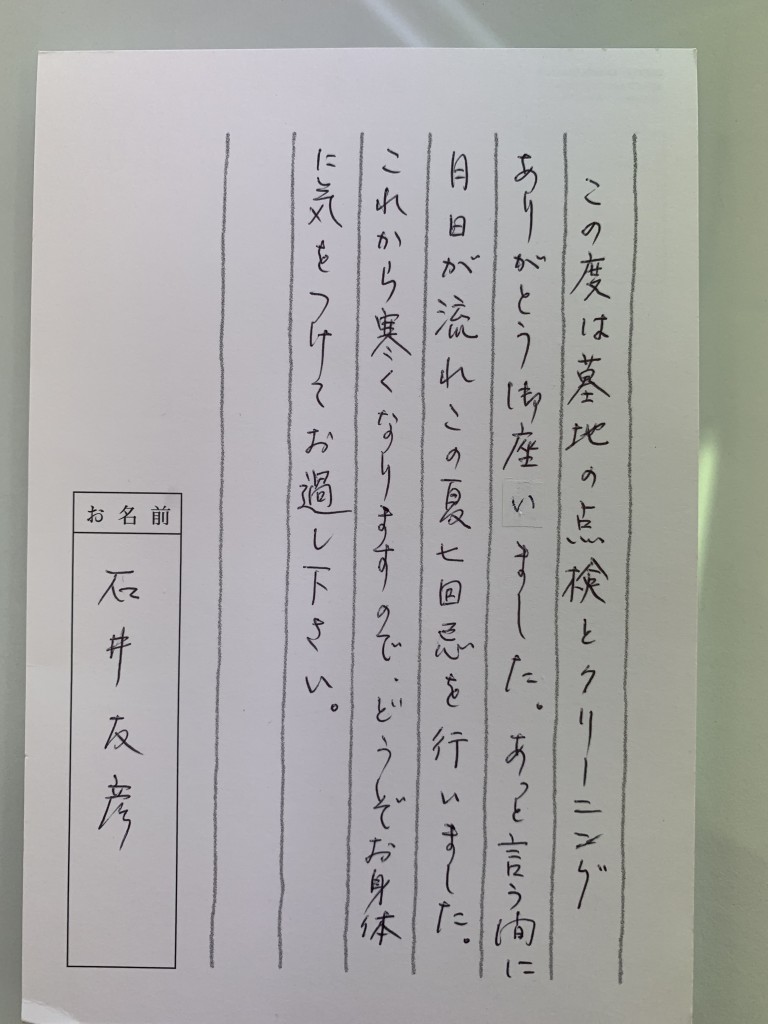 この度は墓地の点検とクリーニング
ありがとう御座いました。あっと言う間に
月日が流れこの夏七回忌を行いました。
これから寒くなりますので、どうぞお身体
に気をつけてお過し下さい。
お名前
石井友彦